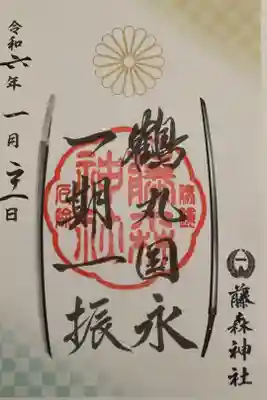 藤森神社
鶴丸国永
一期一振
藤森
神社
令和六年一月二十一日